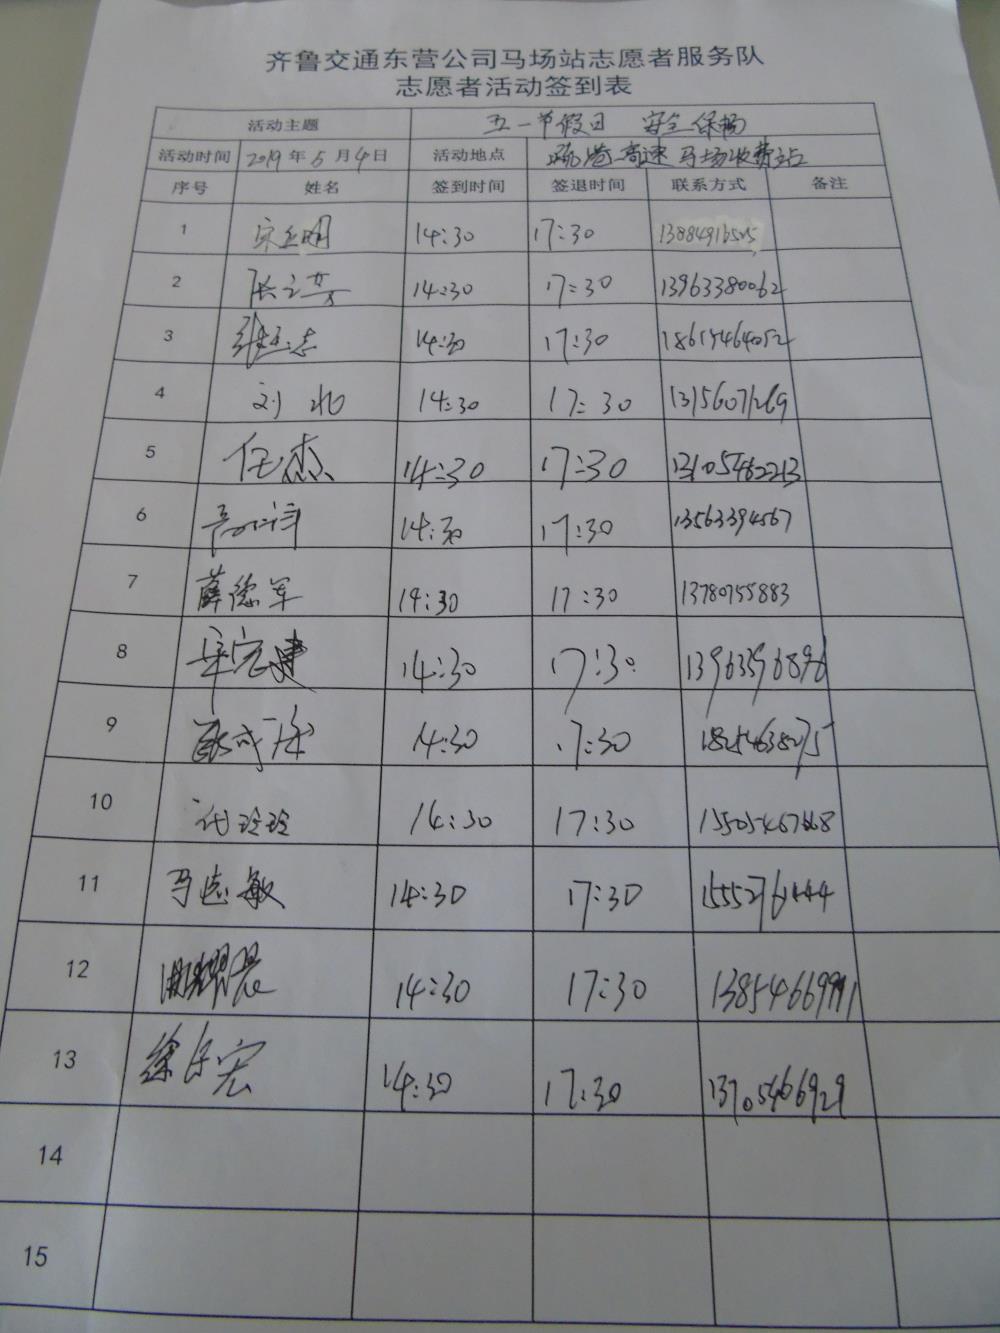 齐鲁交通东营公司马场站志愿者服务队
志愿者活动签到表
活动主题 五一节假日 安全保畅
活动时间 2019年5月4日 活动地点 疏港高速马场收费站
序号 姓名 签到时间 签退时间 联系方式 备注
1 14:30 17:30
2 14:30 17:30 13963380062
3 14:30 17:30
4 刘北 14:30 17:30 13156071269
5 任杰 14:30 17:30 13105462213
6 14:30 17:30 13563394567
7 薛德军 14:30 17:30 13780755883
8 14:30 17:30 13963396896
9 14:30 17:30 18254638275
10 代玲玲 14:30 17:30
11 马志敏 14:30 17:30 15552761444
12 14:30 17:30
13 徐乐宏 14:30 17:30 13705466929
14
15